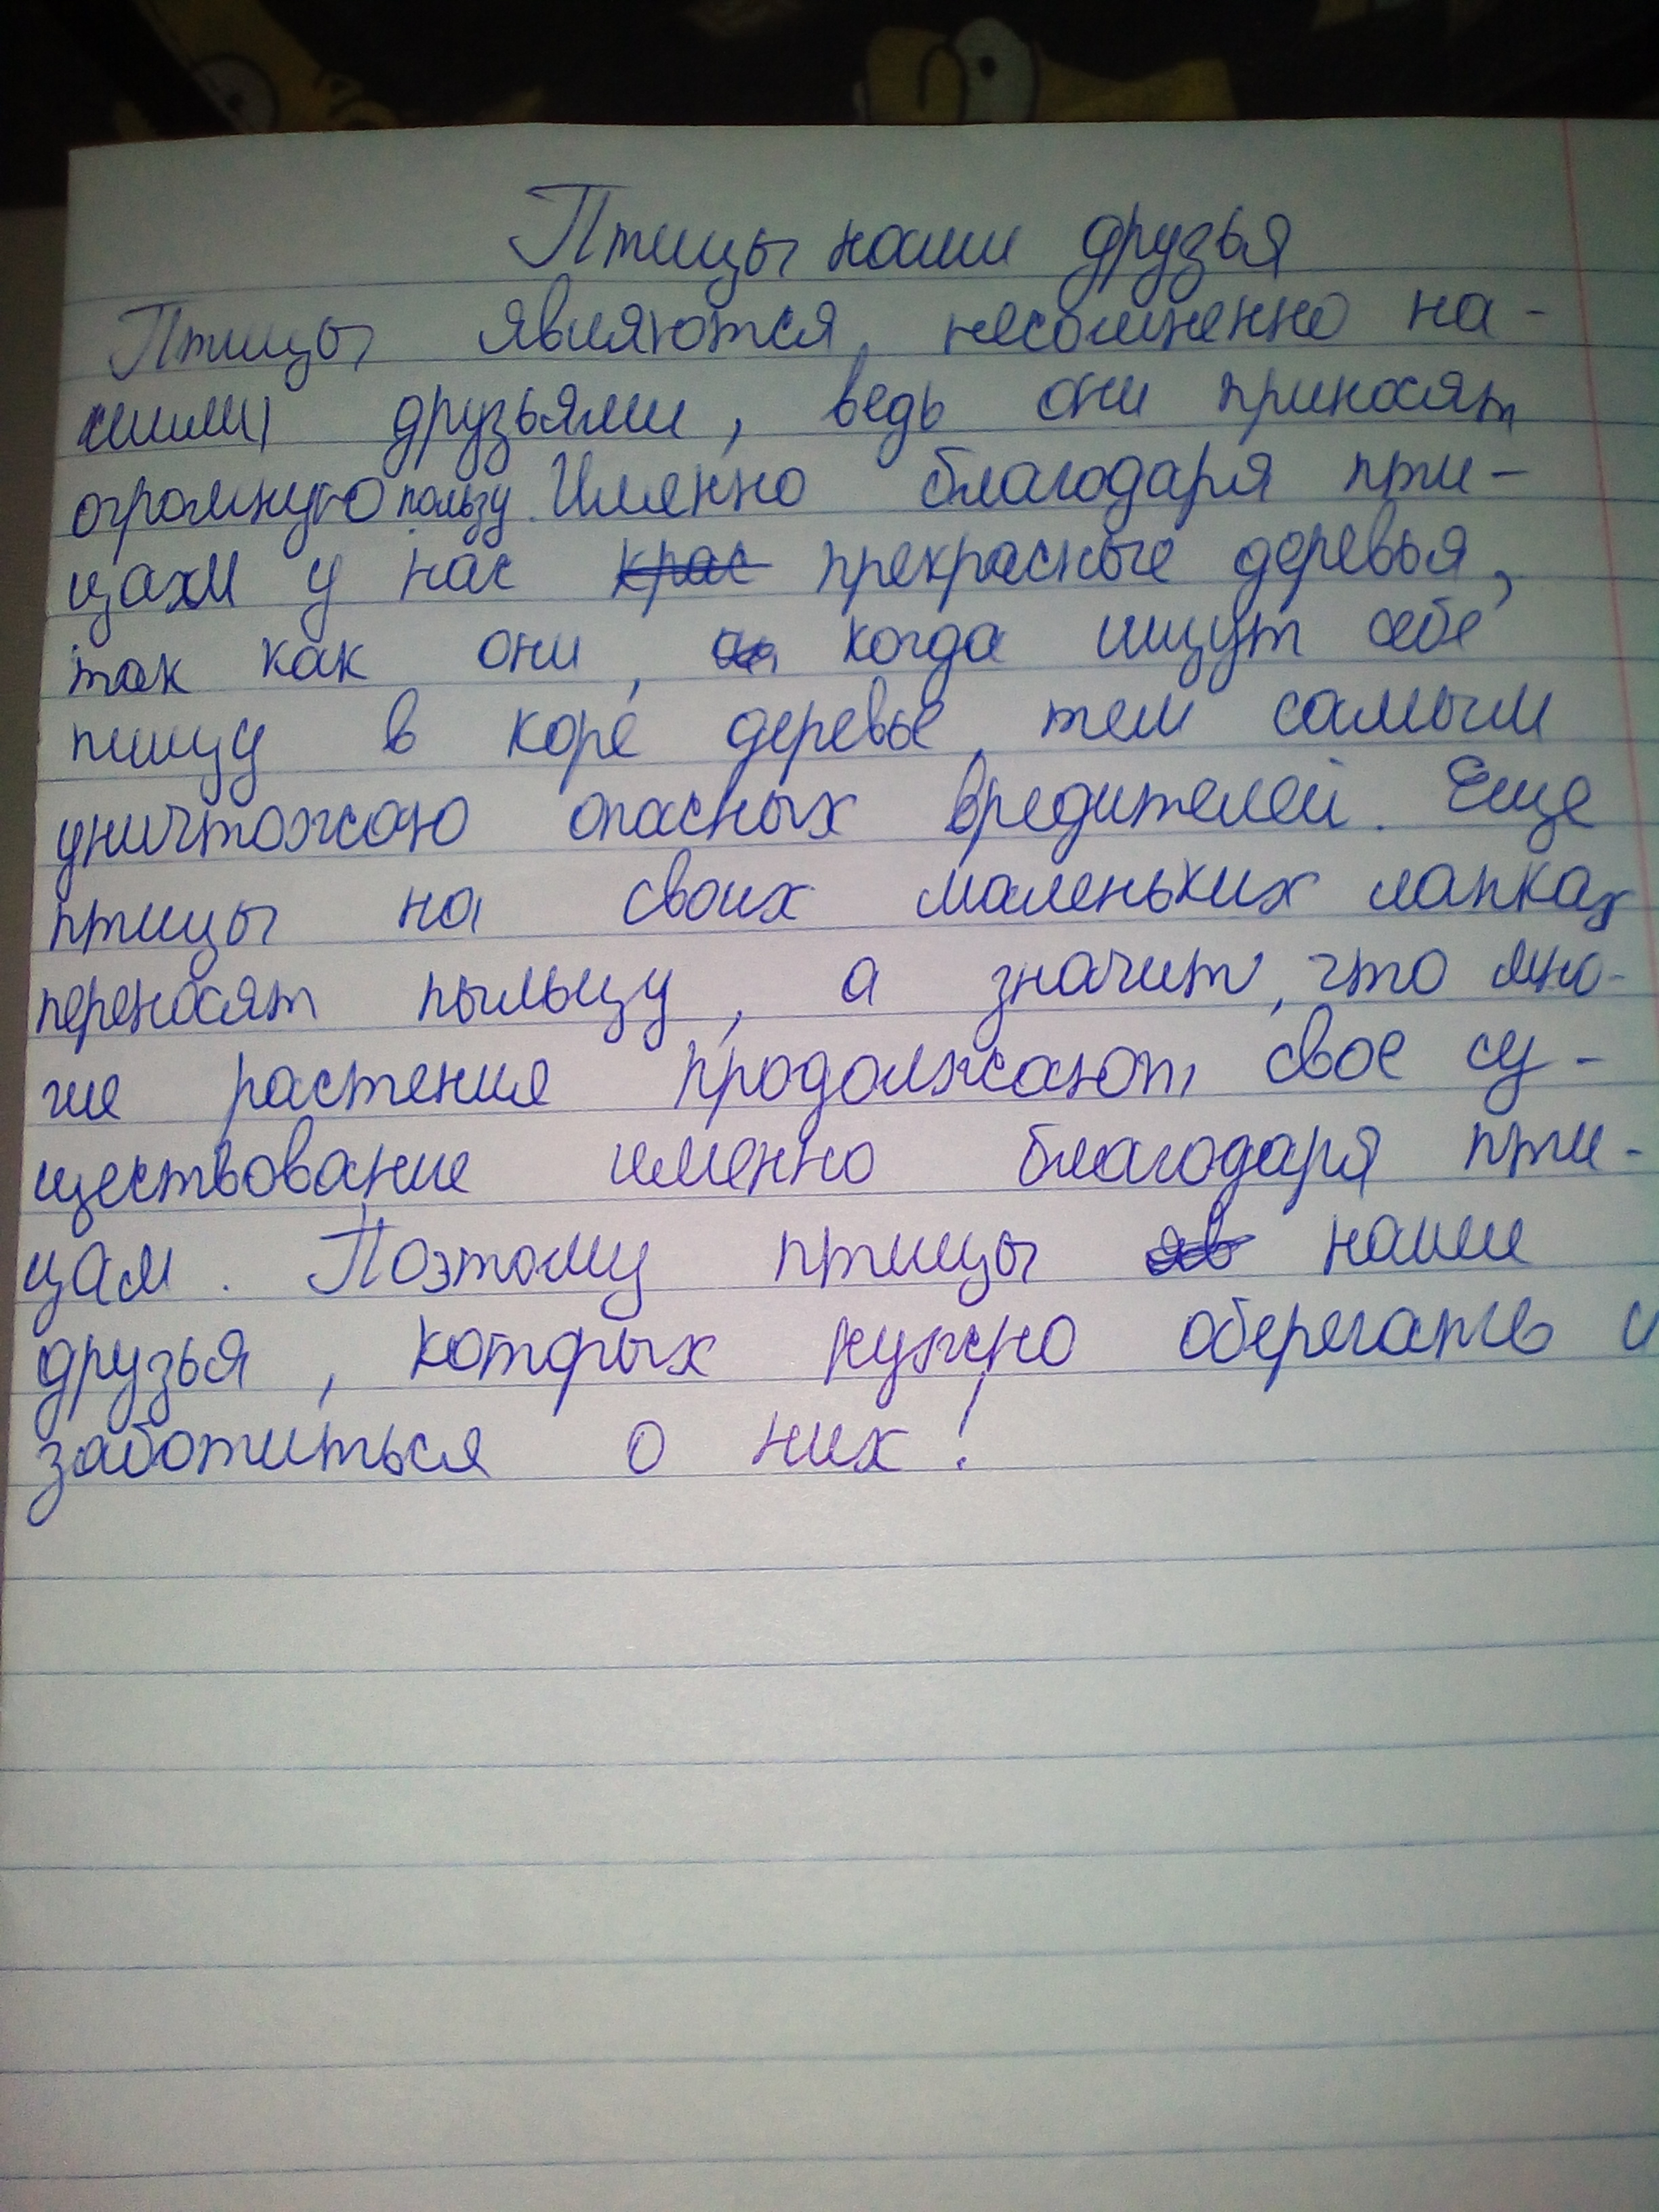 Птицы наши друзья
Птицы являются, несомненно на-
шими друзьями, ведь они приносят
огромную пользу. Именно благодаря пти-
цам у нас крас прекрасные деревья,
так как они, когда ищут себе
пищу в коре деревье, тем самым
уничтожаю опасных вредителей. Еще
птицы на своих маленьких лапках
переносят пыльцу, а значит, что мно-
гие растения продолжают свое су-
ществование именно благодаря пти-
цам. Поэтому птицы яв наши
друзья, которых нужно оберегать и
заботиться о них!